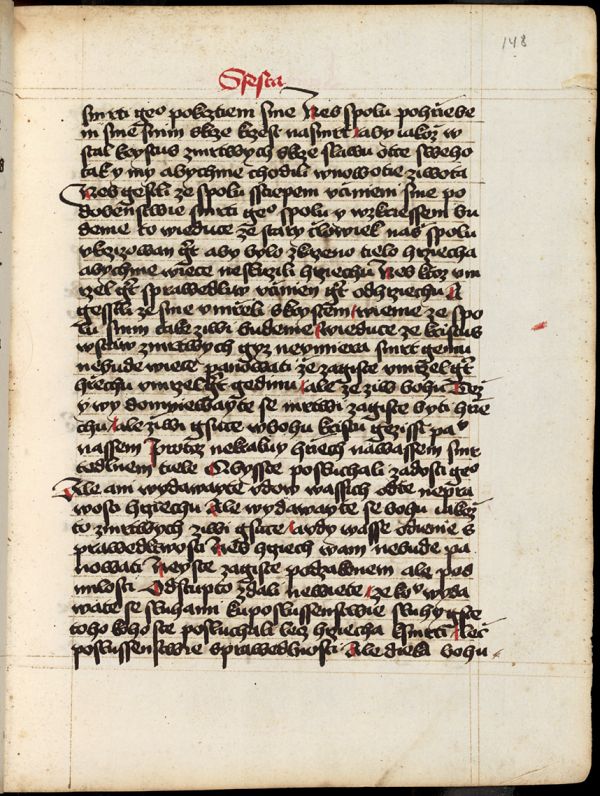 148
Ssesta
smrti geo pokrztieni sme Neb spolu pohrzebe
ni sme snim skrze krzest nasmrt aby iakoz w
stal krystus zmrtwych skrze slawu otce sweho
tak y my abychme chodili wnowotie ziwota
Neb gestli ze spolu sstiepeni vczineni sme po
dobenstwie smrti geo spolu y wzkrziesseni bu
deme to wieduce ze stary czlowiek nas spolu
vkrzizowan gt aby bylo zkazeno tielo hrziecha
abychme wiece neslizili hrziechu Neb ktoz vm
rzel gt sprawedliw vczinen gt odhrziechu A
gestli ze sme vmrzeli skrystem wierzime ze spo
lu snim take ziwi budeme wieduce ze kristus
wstaw zmrtwych gyz neumiera smrt gemu
nebude wiece panowati ze zagiste vmrzel gt
hrziechu vmrzel gt gedinu ale ze ziw bohu Tez
y wy domniewayte se mrtwi zagiste byti hrzie
chu ale ziwi gsuce wbohu kristu gezissi pau
nassem Protoz nekraluy hrziech wwassem smr
tedlnem tiele Abysste posluchali zadosti geo
Ale ani wydawayte vdow wassich odie nepra
wosti hrziechu Ale wydawayte se bohu iakoz
to zmrtwych ziwi gsuce audy wasse odienie s
prawedlnosti Neb hrziech wam nebude pa
nowati Neyste zagiste podzakonem ale pod
milosti Odstupto zdali newiete ze komu wyda
wate se sluhami kuposlussenstwie sluhy gste
toho khoste posluchali lecz hrziecha ksmrti lecz
poslussenstwie sprawedlnosti Ale dieka bohu